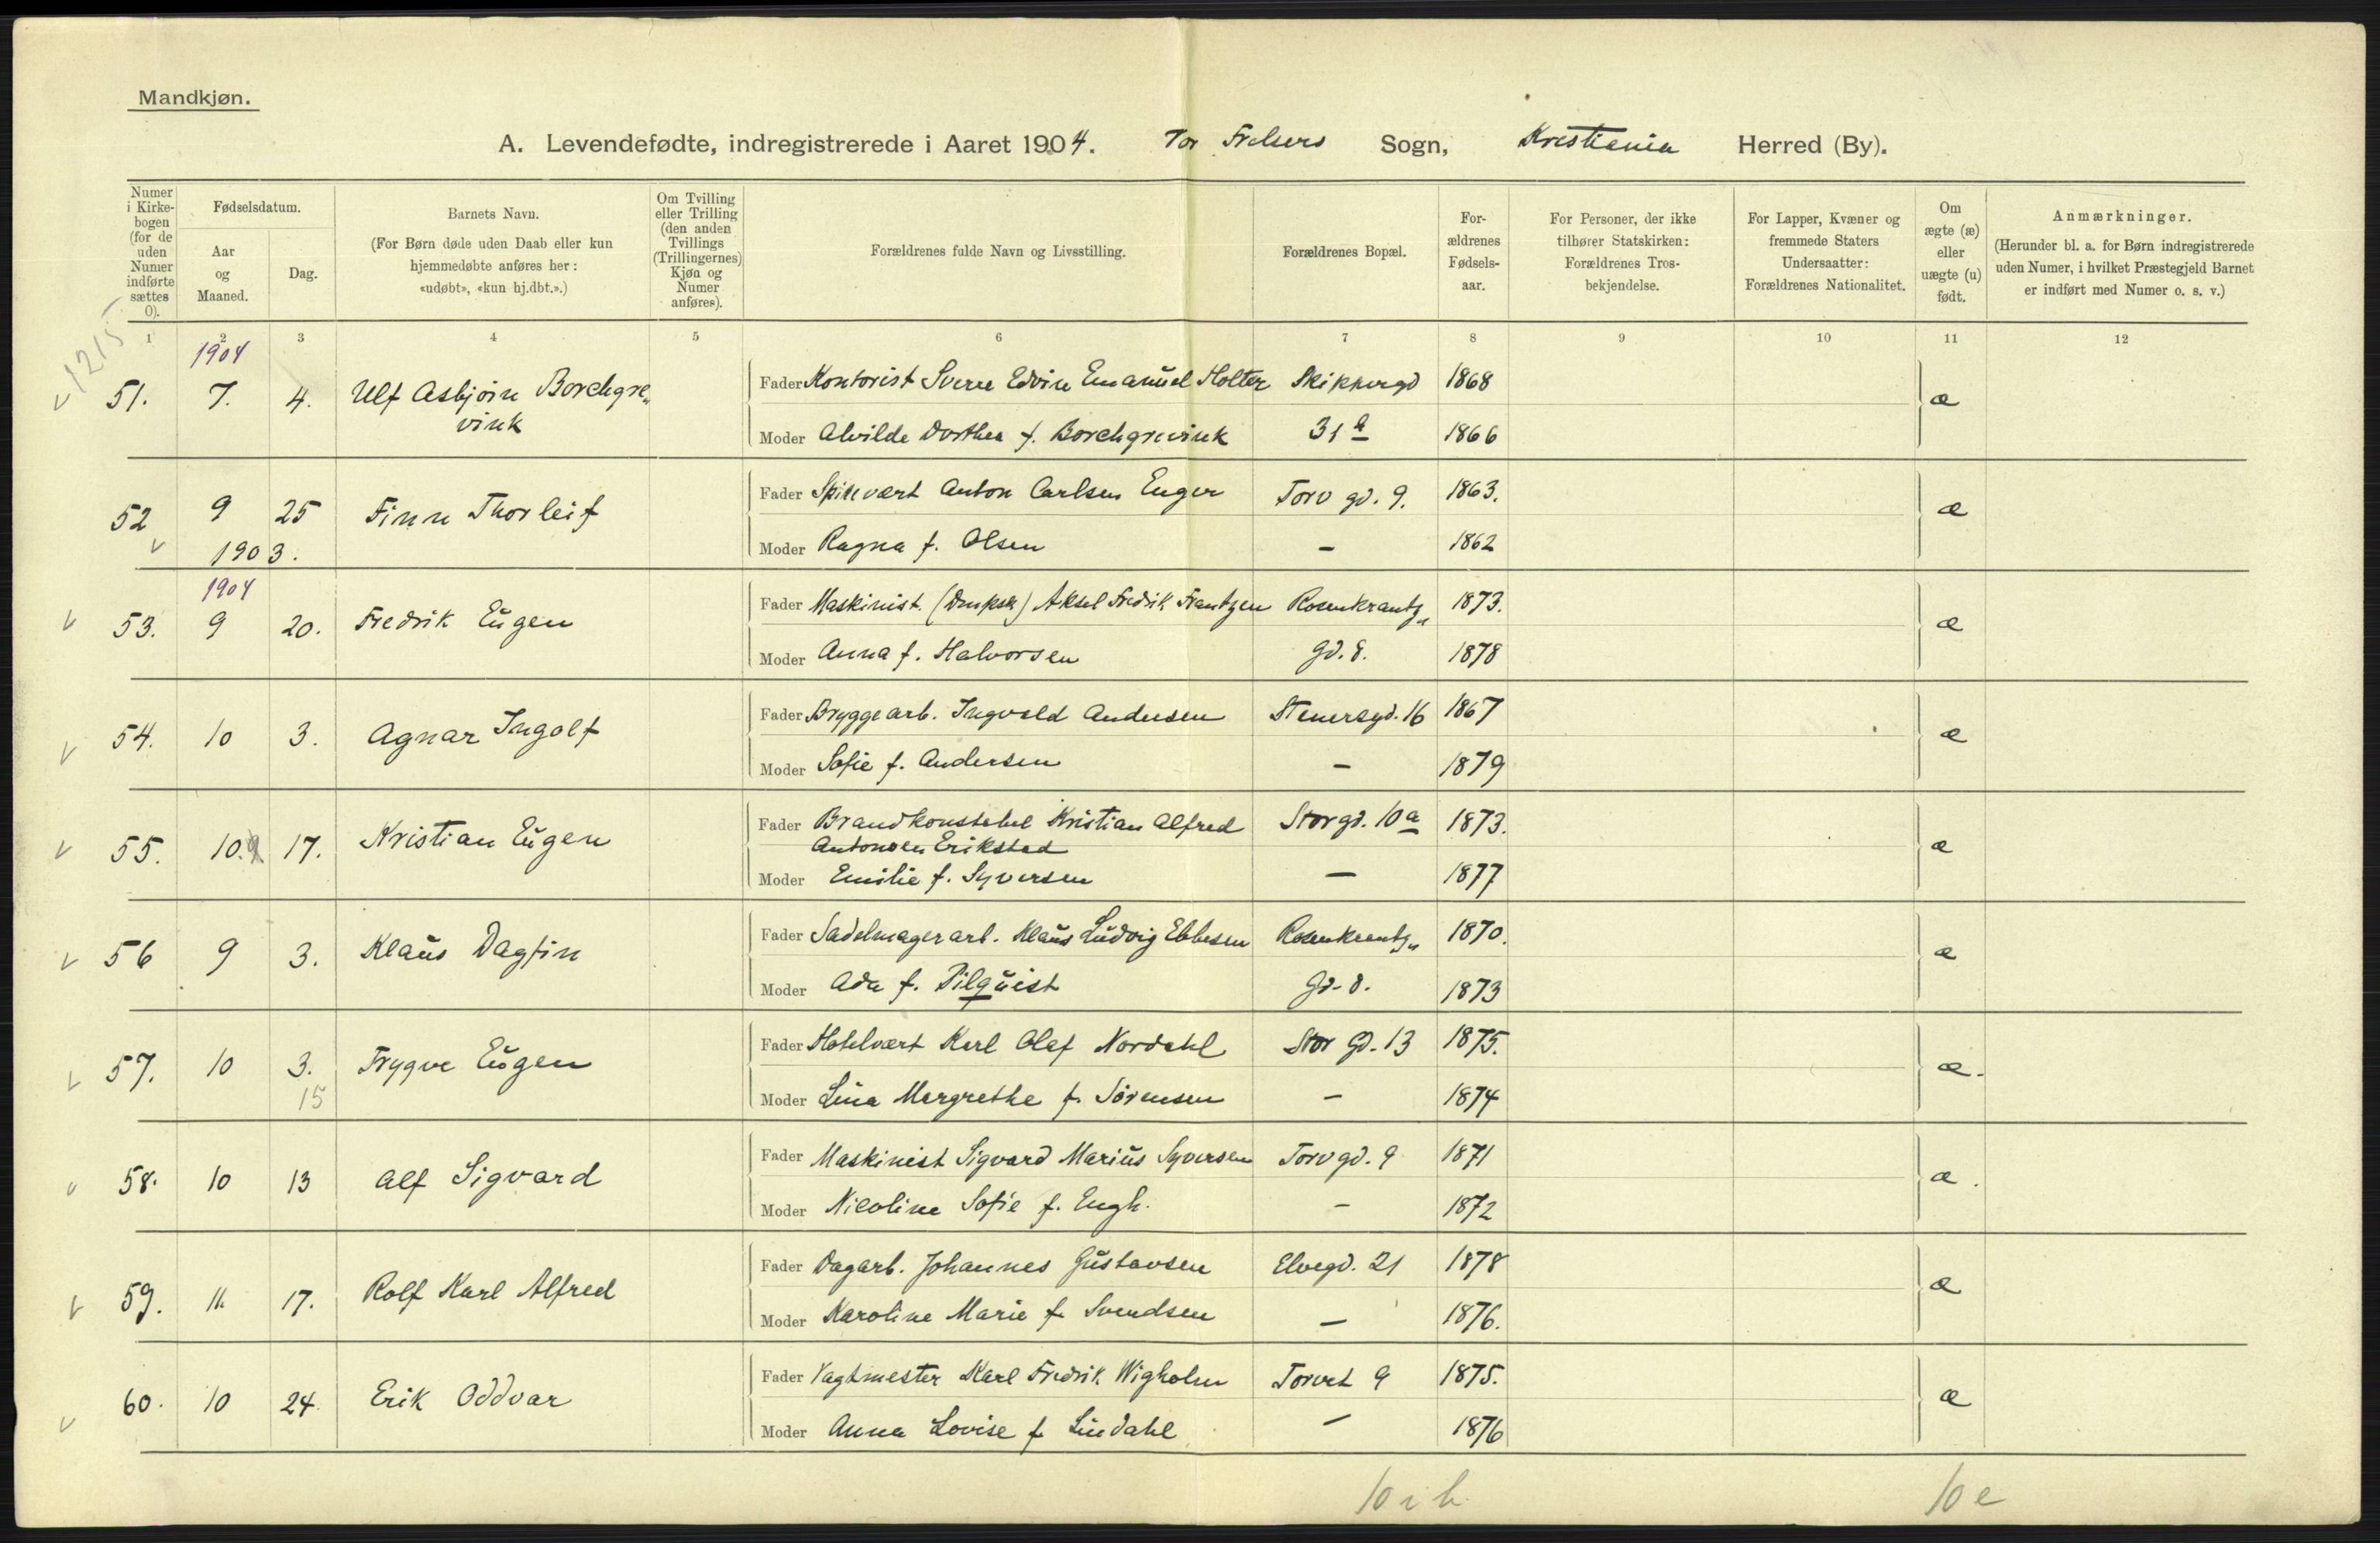 Mandkjøn.
A. Levendefødte, indregistrerede i Aaret 1904. Vor Frelsers Sogn, Kristiania Herred (By).
Numer i Kirke-bogen (for de uden Numer indførte sættes 0).
Fødselsdatum.
Aar og Maaned.
Dag.
Barnets Navn.
(For Børn døde uden Daab eller kun hjemmedøbte anføres her: «udøbt», «kun hj.dbt.».)
Om Tvilling eller Trilling (den anden Tvillings (Trillingernes) Kjøn og Numer anføres).
Forældrenes fulde Navn og Livsstilling.
Forældrenes Bopæl.
For-ældrenes Fødsels-aar.
For Personer, der ikke tilhører Statskirken: Forældrenes Tros-bekjendelse.
For Lapper, Kvæner og fremmede Staters Undersaatter: Forældrenes Nationalitet.
Om ægte (æ) eller uægte (u) født.
Anmærkninger.
(Herunder bl. a. for Børn indregistrerede uden Numer, i hvilket Præstegjeld Barnet er indført med Numer o. s. v.)
1 2 3 4 5 6 7 8 9 10 11 12
v 1215
1904
51. 7. 4. Ulf Asbjørn Borchgre„vink
Fader Kontorist Sverre Edvin Emanuel Holter Skippergd 1868 æ
Moder Alvilde Dorthea f. Borchgrevink 31 b 1866
52 9 25 Finn Thorleif
v 1903.
Fader Spisevært Anton Carlsen Enger Torvgd. 9. 1863. æ
Moder Ragna f. Olsen – 1862
1904
v 53. 9 20. Fredrik Eugen
Fader Maskinist. (Dmpsk) Aksel Fredrik Frantzen Rosenkrantz„ 1873. æ
Moder Anna f. Halvorsen gd. 8. 1878
v 54. 10 3. Agnar Ingolf
Fader Bryggearb. Ingvald Andersen Stenersgd. 16 1867 æ
Moder Sofie f. Andersen – 1879
v 55. 10. 9 17. Kristian Eugen
Fader Brandkonstabel Kristian Alfred Storgd. 10 a 1873. æ
Antonsen Erikstad
Moder Emilie f. Syversen – 1877
v 56 9 3. Klaus Dagfin
Fader Sadelmagerarb. Klaus Ludvig Ebbesen Rosenkrantz„ 1870. æ
Moder Ada f. Pilquist gd. 8. 1873
v 57. 10 3. Trygve Eugen
15
Fader Hotelvært Karl Olaf Nordahl Stor Gd. 13 1875. æ.
Moder Lina Margrethe f. Sørensen – 1874
v 58. 10 13 Alf Sigvard
Fader Maskinist Sigvard Marius Syversen Torvgd. 9 1871 æ.
Moder Nicoline Sofie f. Engh. – 1872
v 59. 11. 17. Rolf Karl Alfred
Fader Dagarb. Johannes Gustavsen Elvegd. 21 1878 æ
Moder Karoline Marie f. Svendsen – 1876.
v 60. 10 24. Erik Oddvar
Fader Vagtmester Karl Fredrik Wigholm Torvet 9 1875. æ
Moder Anna Lovise f. Lindahl – 1876
10 i b. 10 e